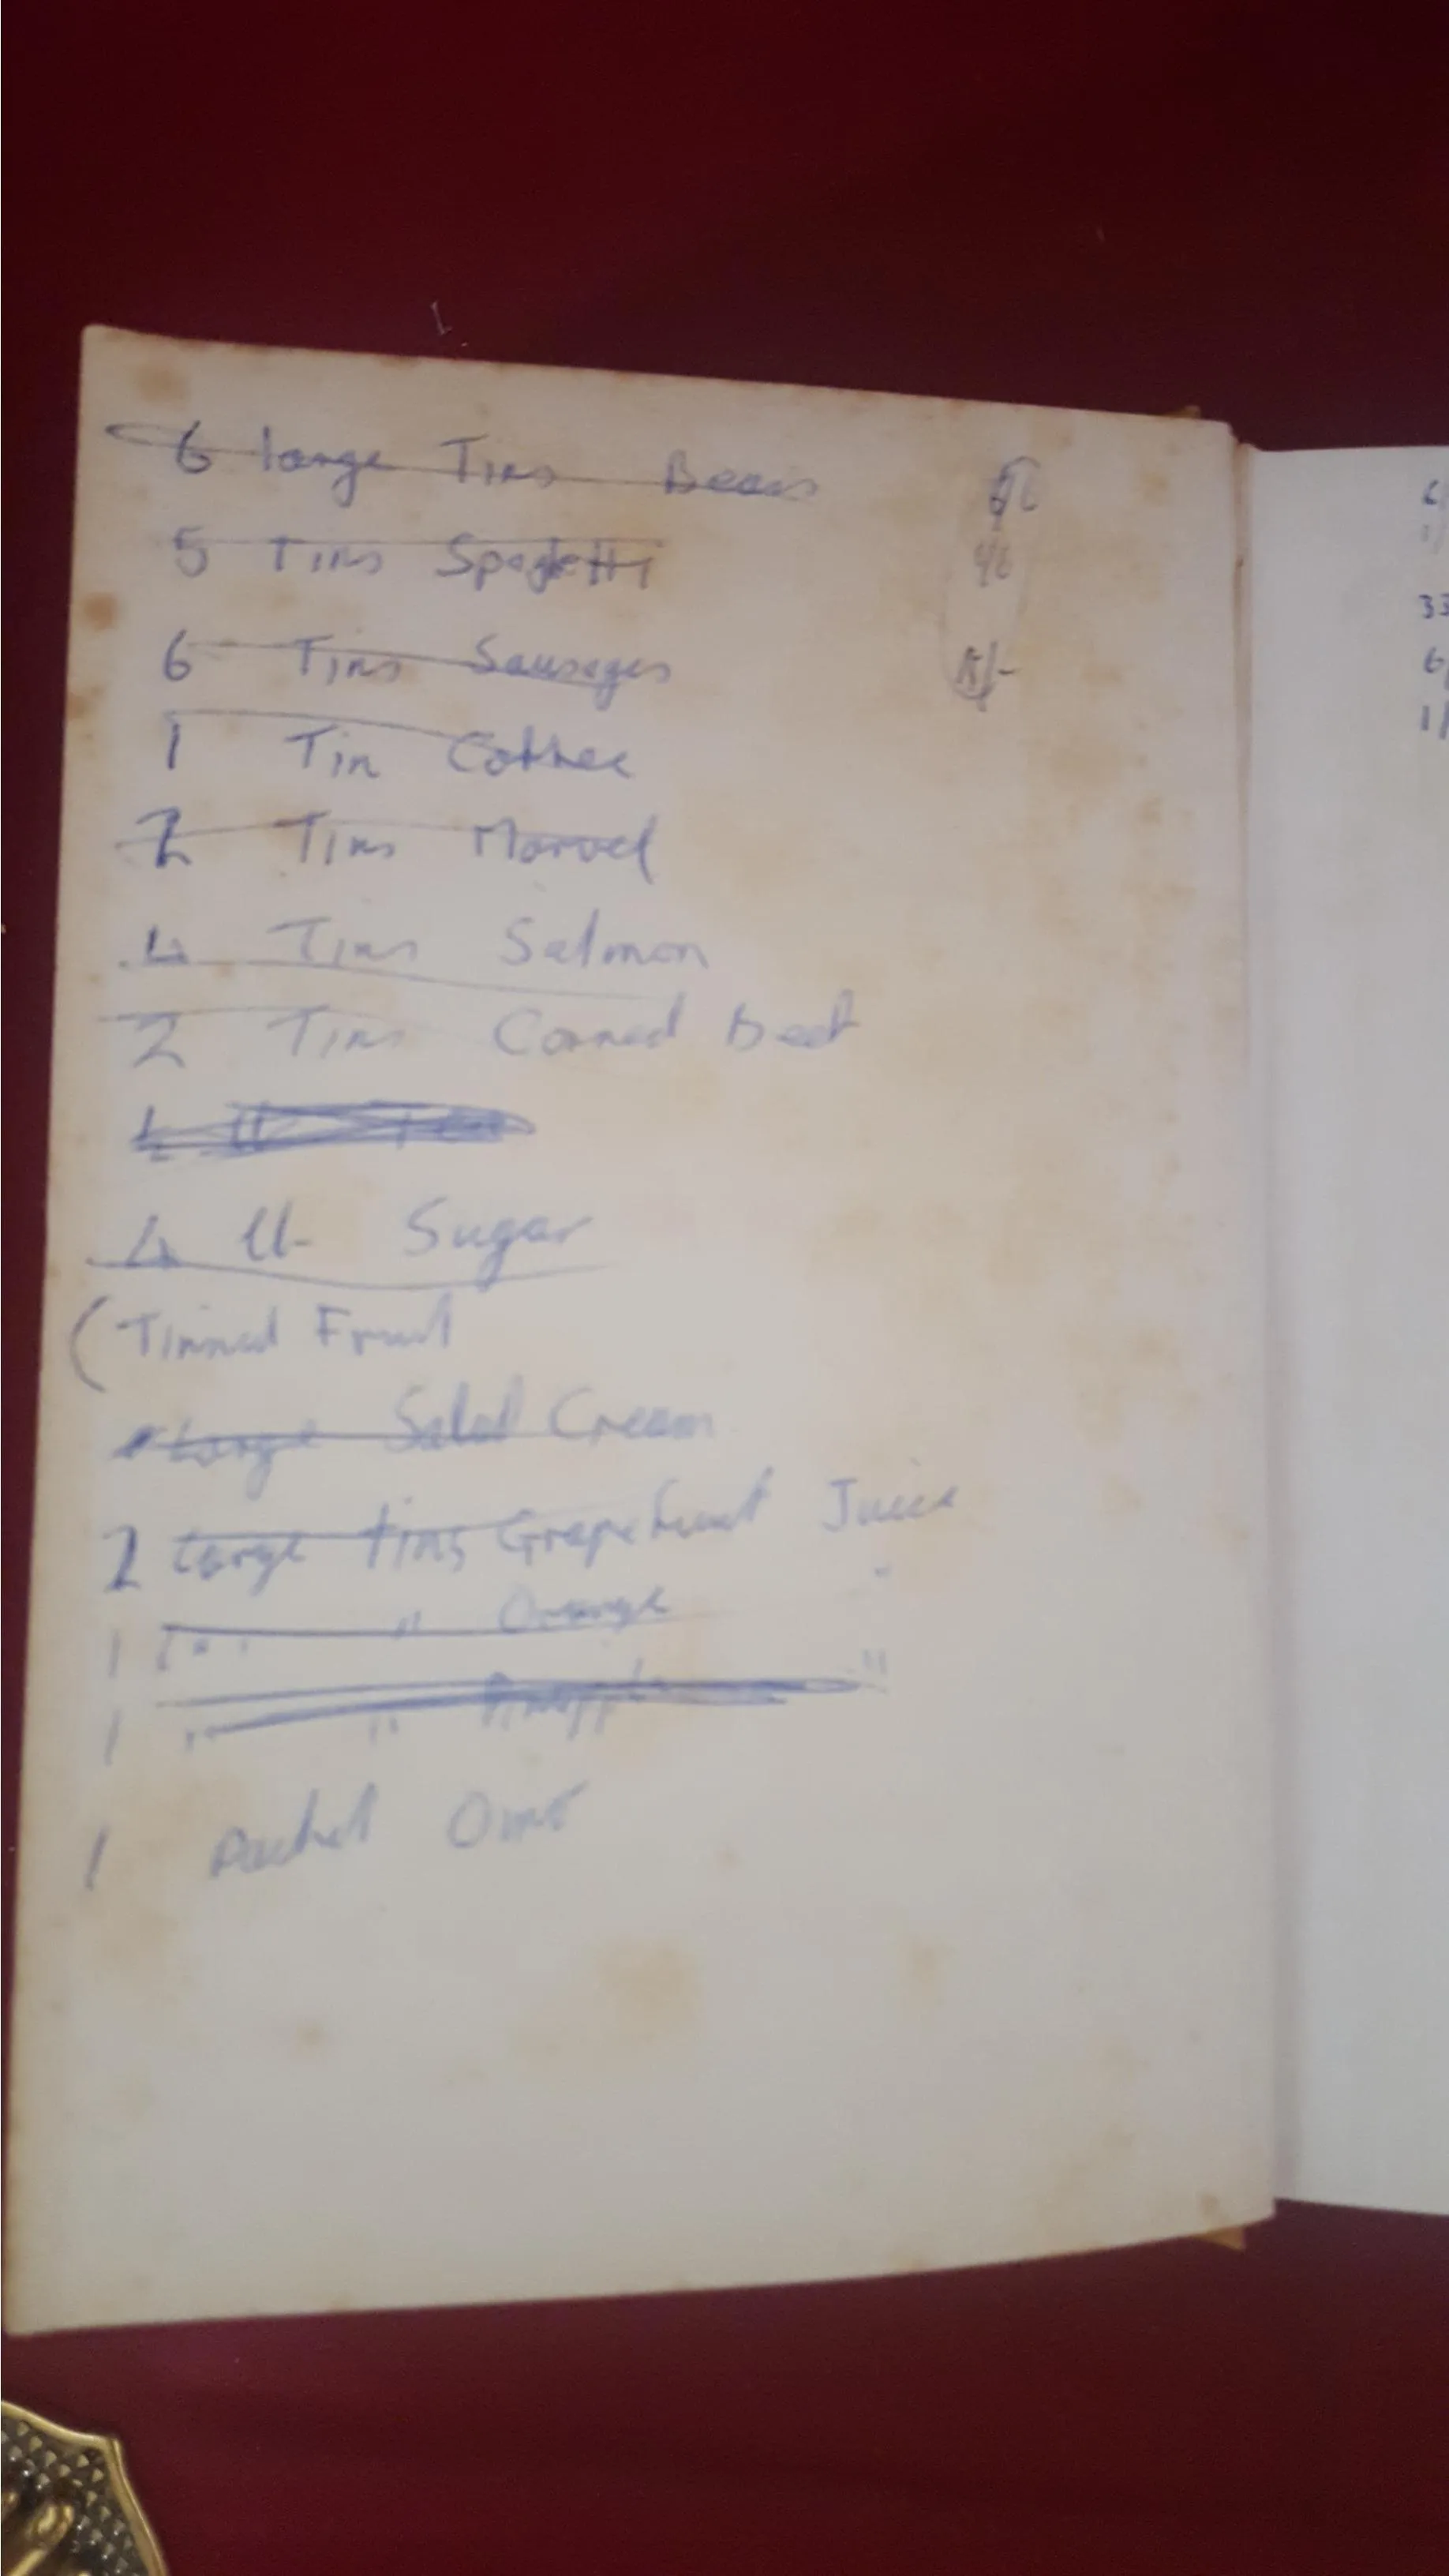 6 large Tins Beans
5 Tins Spagetti
6 Tins Sausages 15/-
1 Tin Coffee
2 Tins Marvel
4 Tins Salmon
2 Tins Corned Beef
4 lb Sugar
(Tinned Fruit
Large Salad Cream
2 Large tins Grapefruit Juice
1 " " Orange "
1 " " Pineapple "
1 Packet Omo